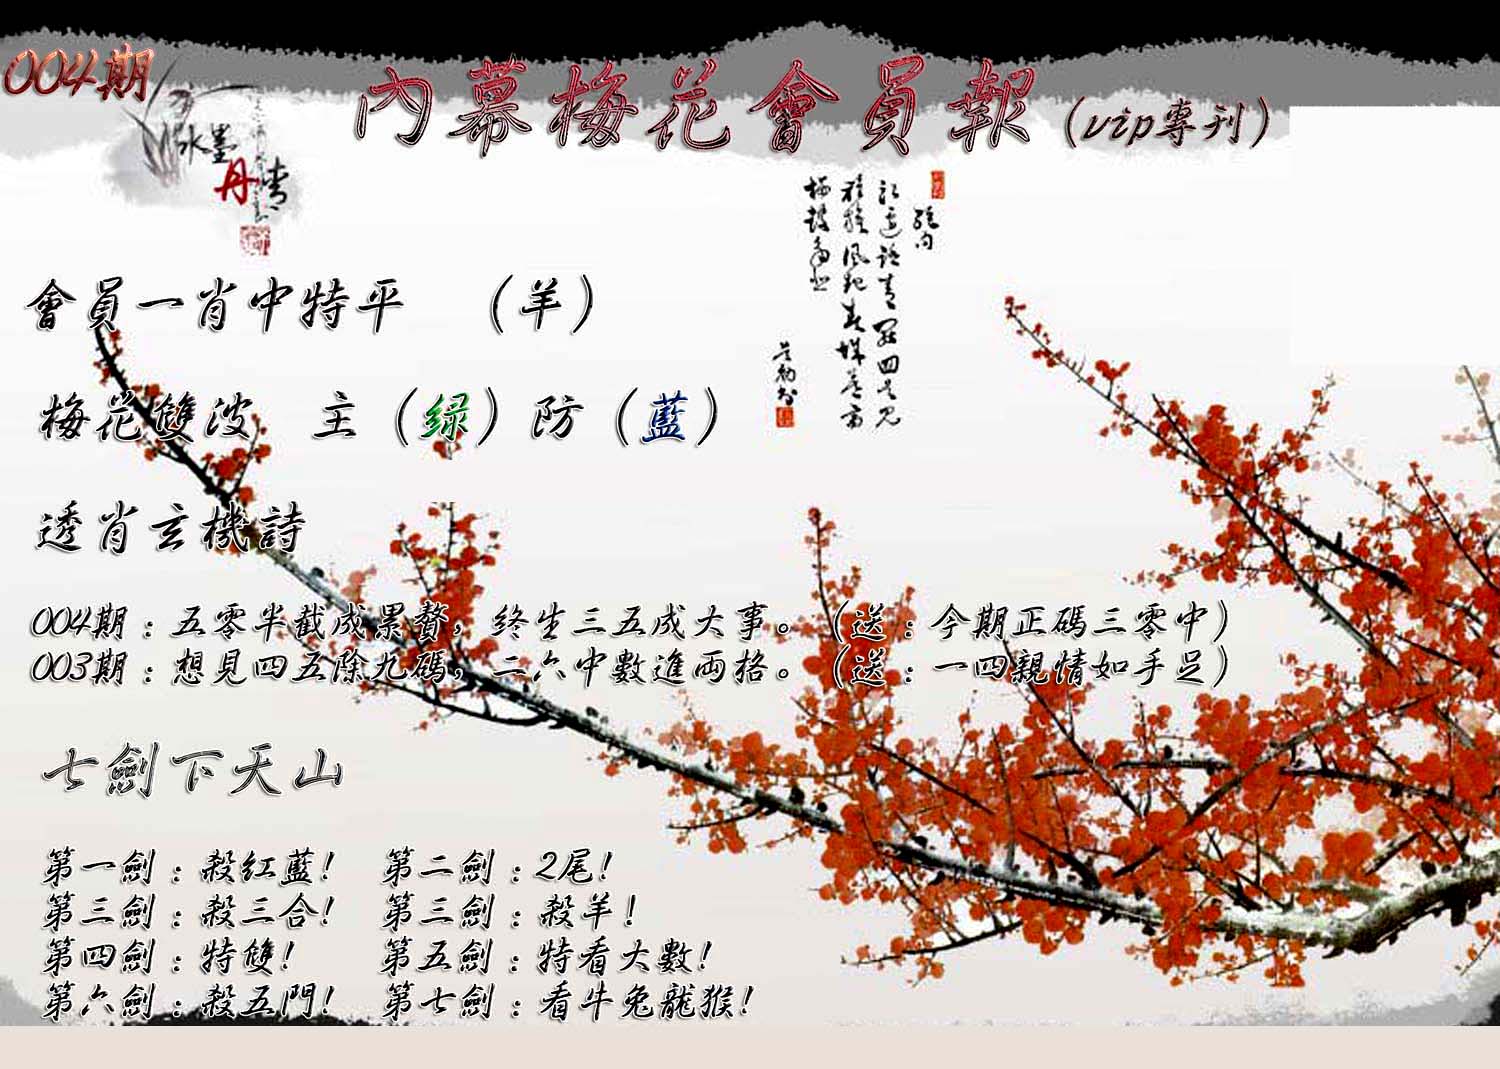 004期
內幕梅花會員報(vip專刊)
水墨
丹青
會員一肖中特平 (羊)
梅花雙波 主(绿)防(藍)
透肖玄機詩
004期:五零半截成累贅,終生三五成大事。(送:今期正碼三零中)
003期:想見四五除九碼,二六中數進兩格。(送:一四親情如手足)
七劍下天山
第一劍:殺紅藍! 第二劍:2尾!
第三劍:殺三合! 第三劍:殺羊!
第四劍:特雙! 第五劍:特看大數!
第六劍:殺五門! 第七劍:看牛兔龍猴!